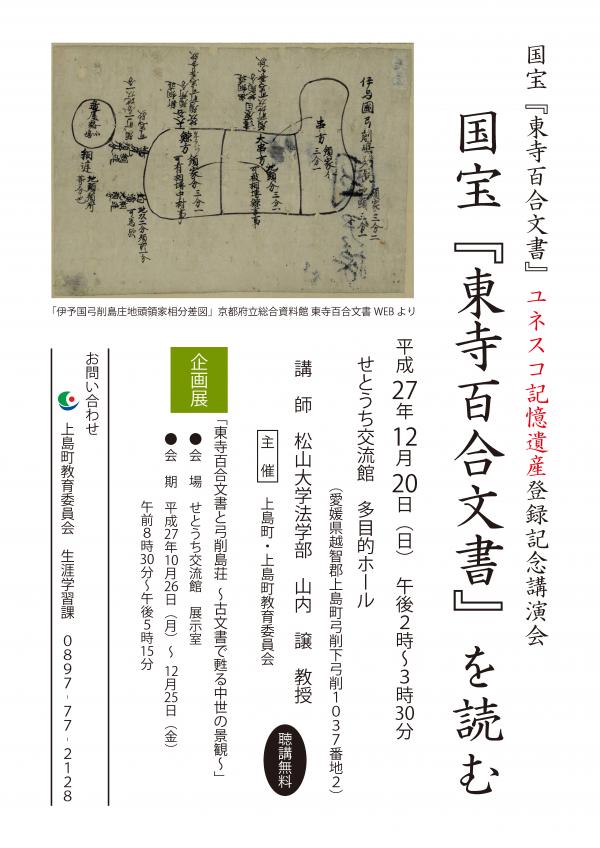 国宝『東寺百合文書』ユネスコ記憶遺産登録記念講演会
国宝『東寺百合文書』を読む
「伊予国弓削島庄地頭領家相分差図」京都府立総合資料館 東寺百合文書 WEB より
平成27年12月20日（日）　午後2時〜3時30分
せとうち交流館　多目的ホール
（愛媛県越智郡上島町弓削下弓削1037番地2）
講　師　松山大学法学部　山内　譲　教授
主　催　上島町・上島町教育委員会
聴講無料
企画展
「東寺百合文書と弓削島荘　〜古文書で甦る中世の景観〜」
●会　場　せとうち交流館　展示室
●会　期　平成27年10月26日（月）〜 12月25日（金）
午前8時30分〜午後5時15分
お問い合わせ
上島町教育委員会　生涯学習課　0897-77-2128